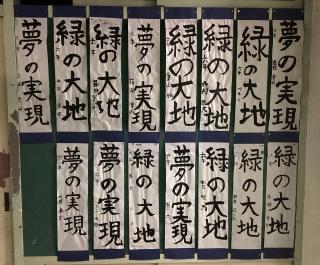 夢の実現
緑の大地
緑の大地
緑の大地
夢の実現
緑の大地
緑の大地
夢の実現
緑の大地
緑の大地
緑の大地
夢の実現
緑の大地
夢の実現
夢の実現